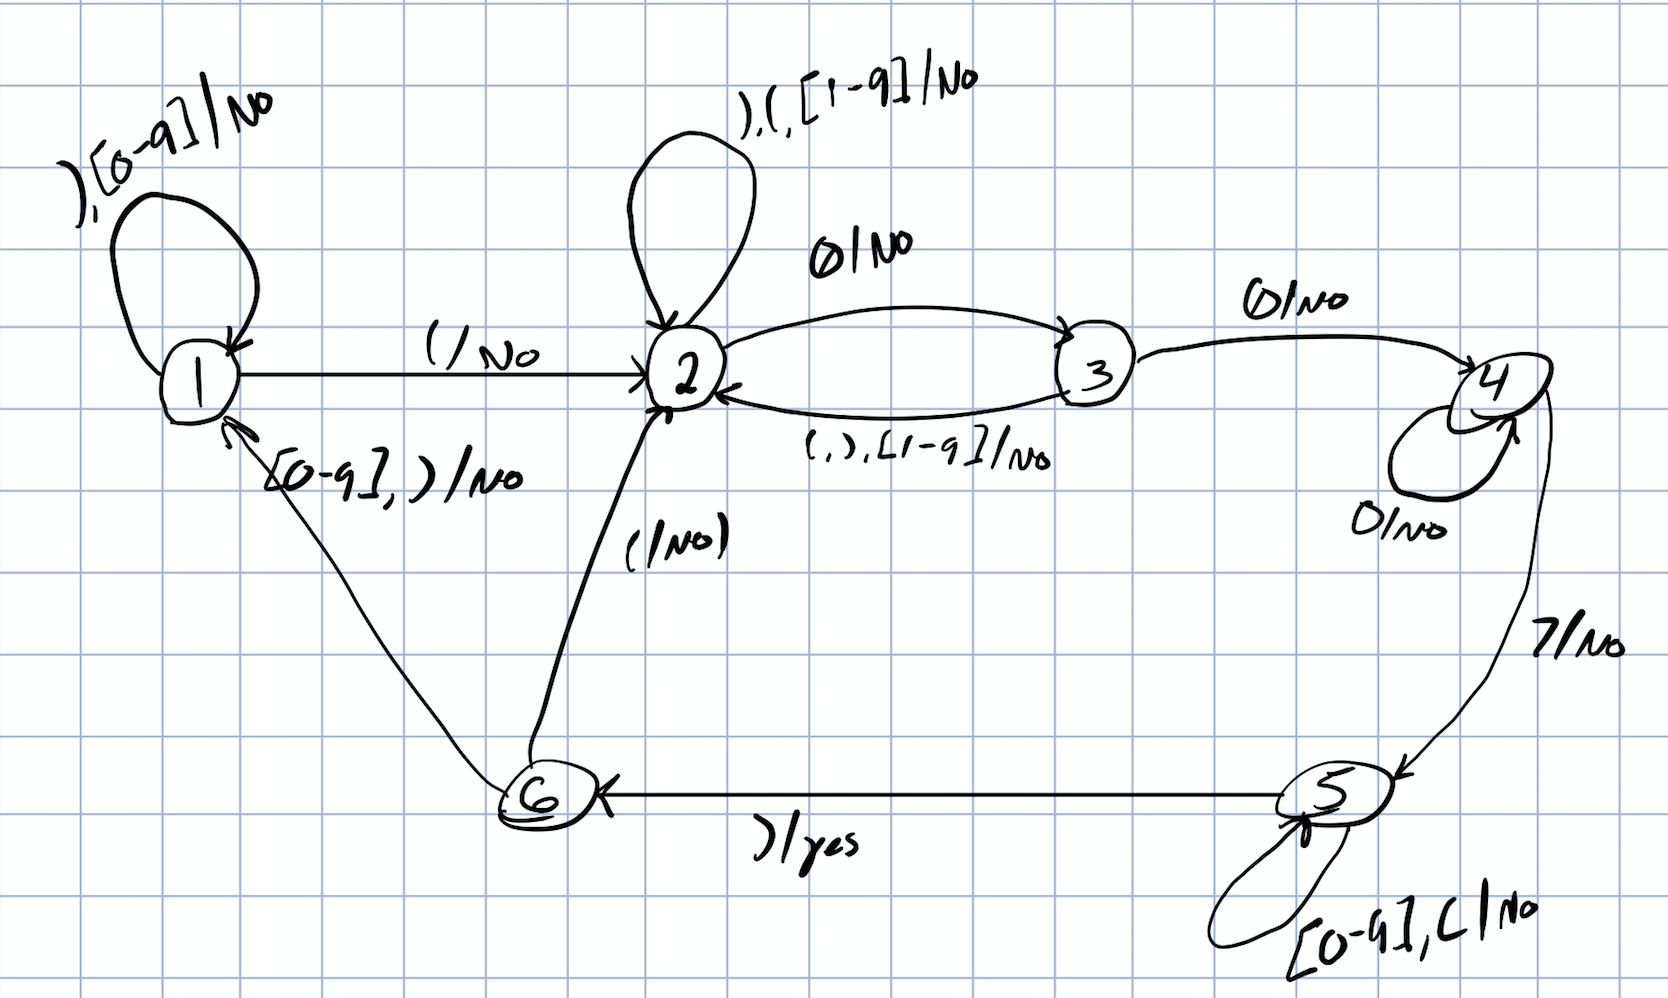 ),[0-9]/No
),(,[1-9]/No
0/No
0/No
(/No
1
2
3
4
(,),[1-9]/No
[0-9],)/No
0/No
(/No)
7/No
6
5
)/yes
[0-9],(/No